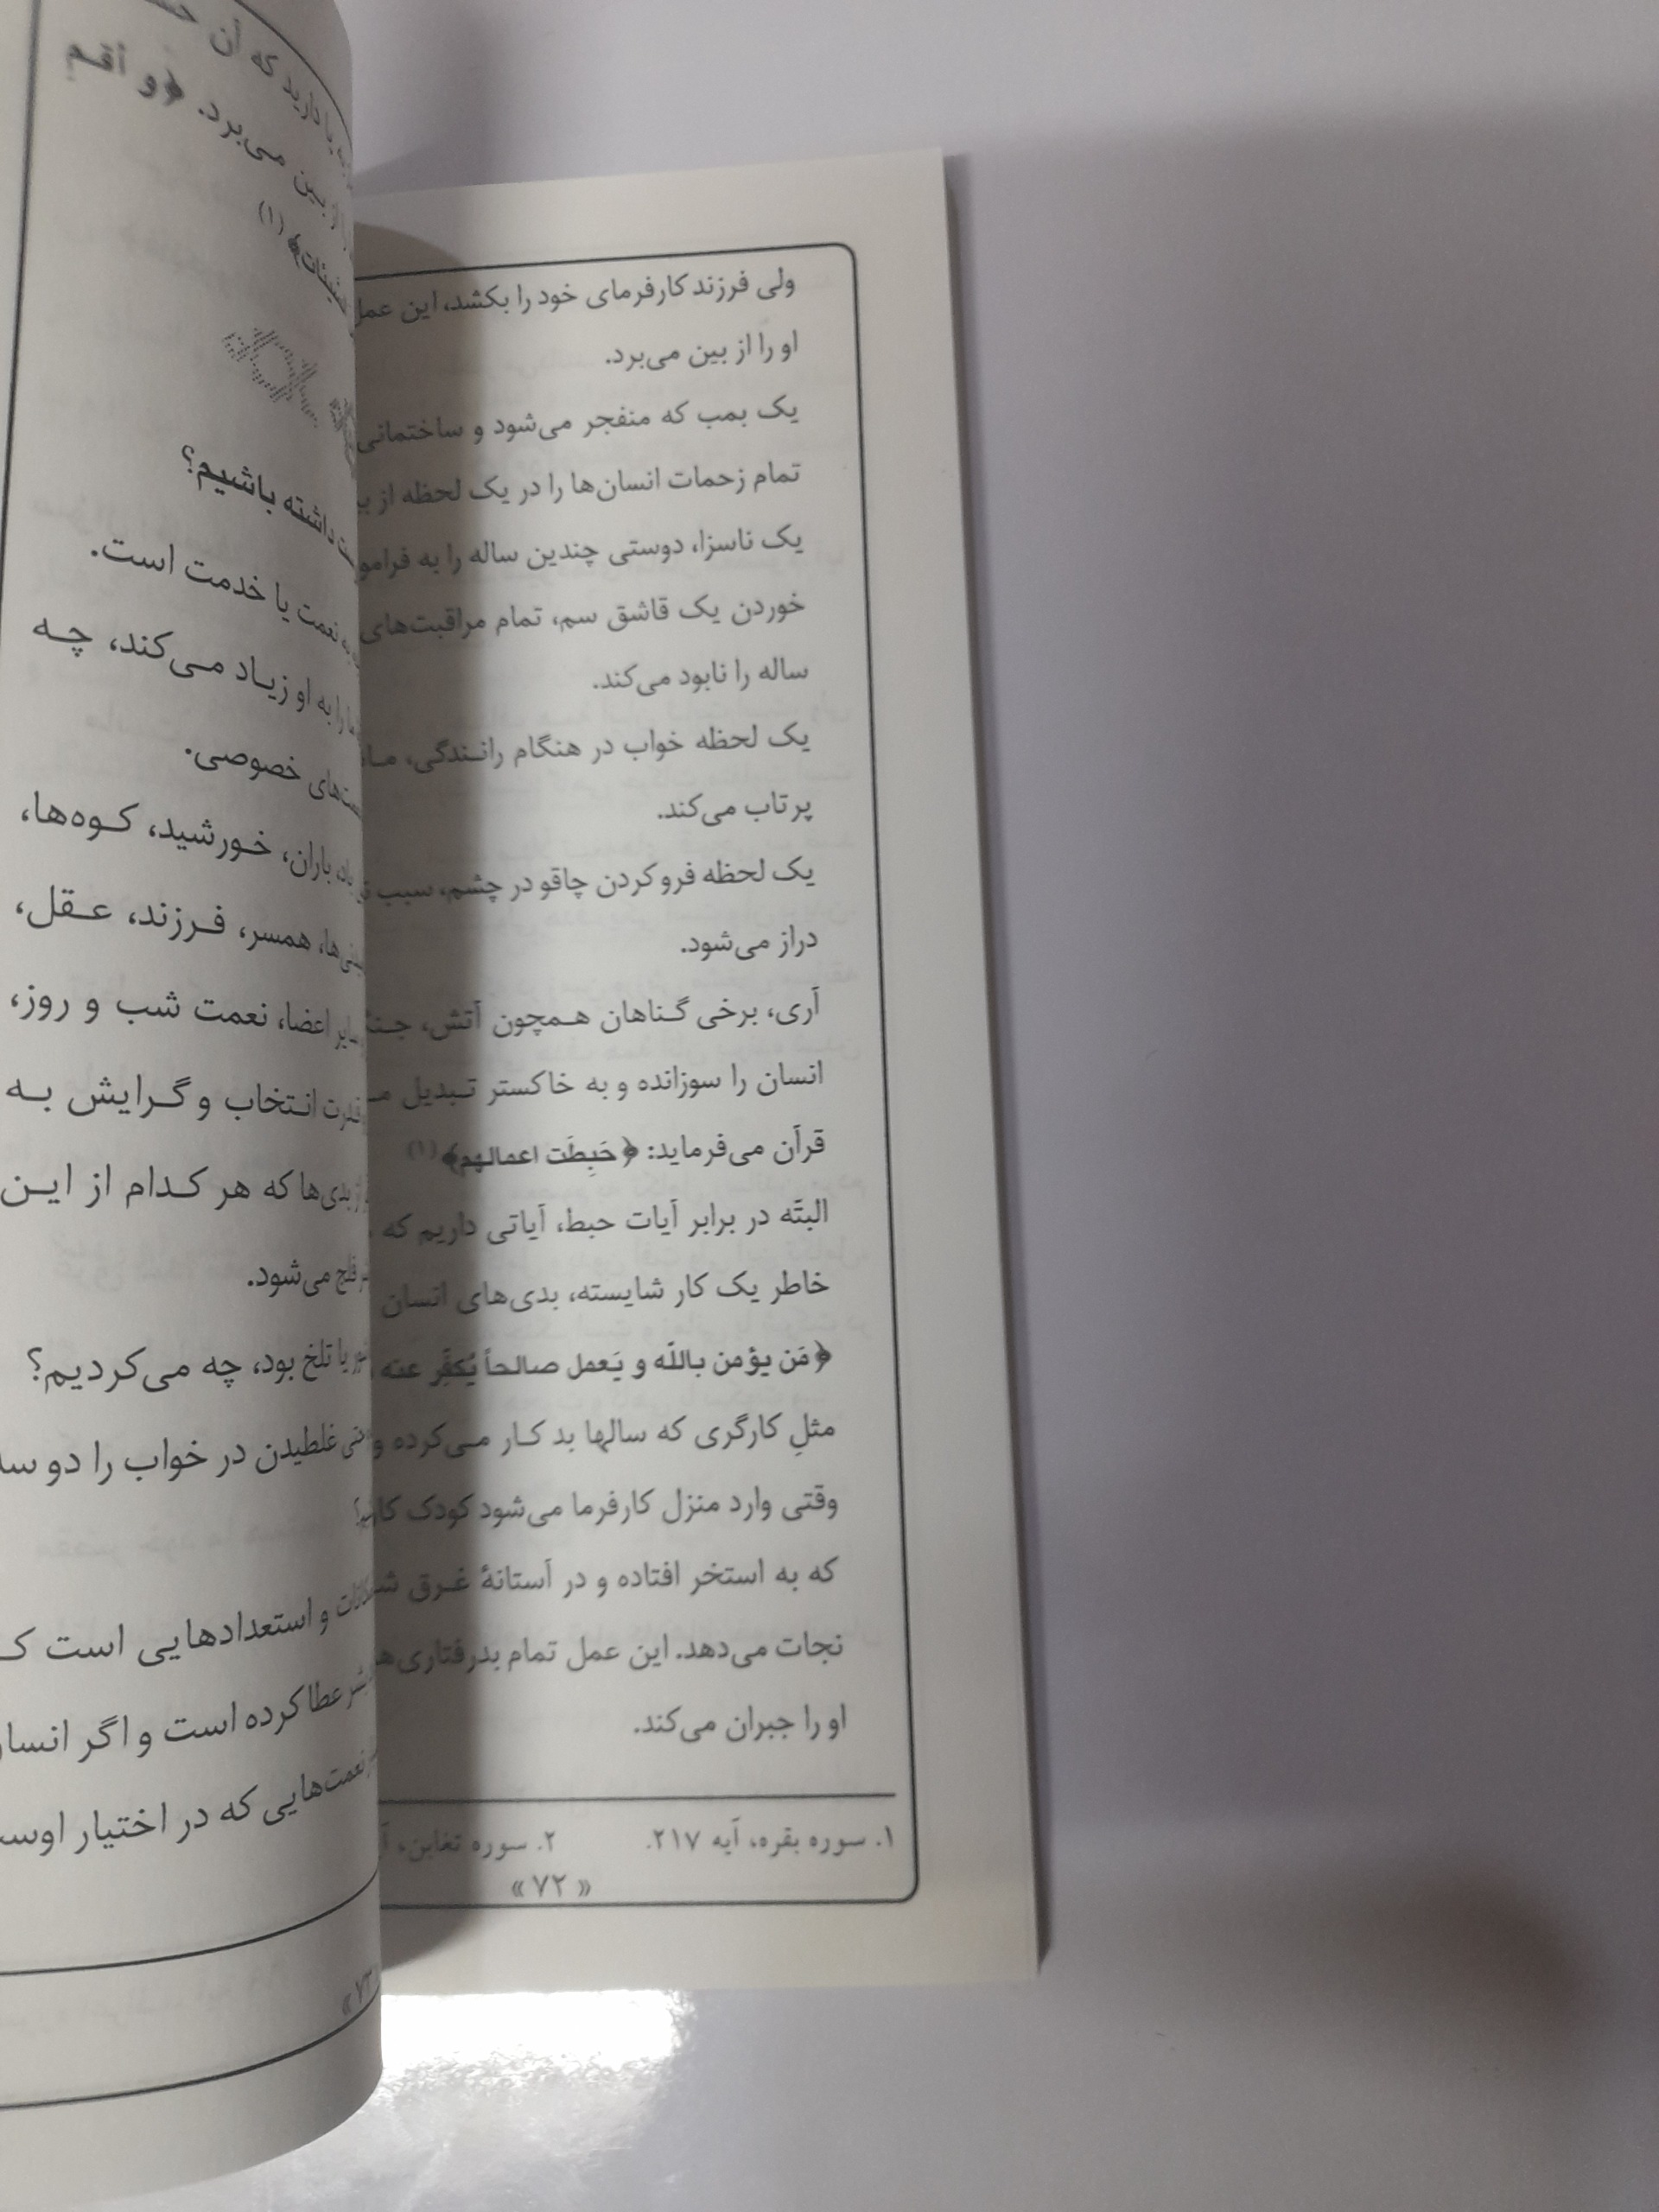 ولی فرزند کارفرمای خود را بکشد، این عمل
او را از بین می‌برد.
یک بمب که منفجر می‌شود و ساختمانی
تمام زحمات انسان‌ها را در یک لحظه از
یک ناسزا، دوستی چندین ساله را به
خوردن یک قاشق سم، تمام مراقبت‌های
ساله را نابود می‌کند.
یک لحظه خواب در هنگام رانندگی،
پرتاب می‌کند.
یک لحظه فرو کردن چاقو در چشم، سبب
دراز می‌شود.
آری، برخی گناهان همچون آتش،
انسان را سوزانده و به خاکستر تبدیل
قرآن می‌فرماید: ﴿حَبِطَت اعمالهم﴾(۱)
البتّه در برابر آیات حبط، آیاتی داریم که
خاطر یک کار شایسته، بدی‌های انسان
﴿مَن یؤمن بالله و یَعمل صالحاً یُکفِّر عنه
مثلِ کارگری که سالها بد کار می‌کرده و
وقتی وارد منزل کارفرما می‌شود کودک
که به استخر افتاده و در آستانهٔ غرق
نجات می‌دهد. این عمل تمام بدرفتاری‌ها
او را جبران می‌کند.
۱. سوره بقره، آیه ۲۱۷.
۲. سوره تغابن،
« ۷۲ »
دارید که آن
بین می‌برد. ﴿و أقم
(۱)
داشته باشیم؟
نعمت یا خدمت است.
را به او زیاد می‌کند، چه
خصوصی.
باران، خورشید، کوه‌ها،
همسر، فرزند، عقل،
اعضا، نعمت شب و روز،
قدرت انتخاب و گرایش به
بدی‌ها که هر کدام از این
فلج می‌شود.
یا تلخ بود، چه می‌کردیم؟
غلطیدن در خواب را دو
و استعدادهایی است
عطا کرده است و اگر
نعمت‌هایی که در اختیار
۷۳ »